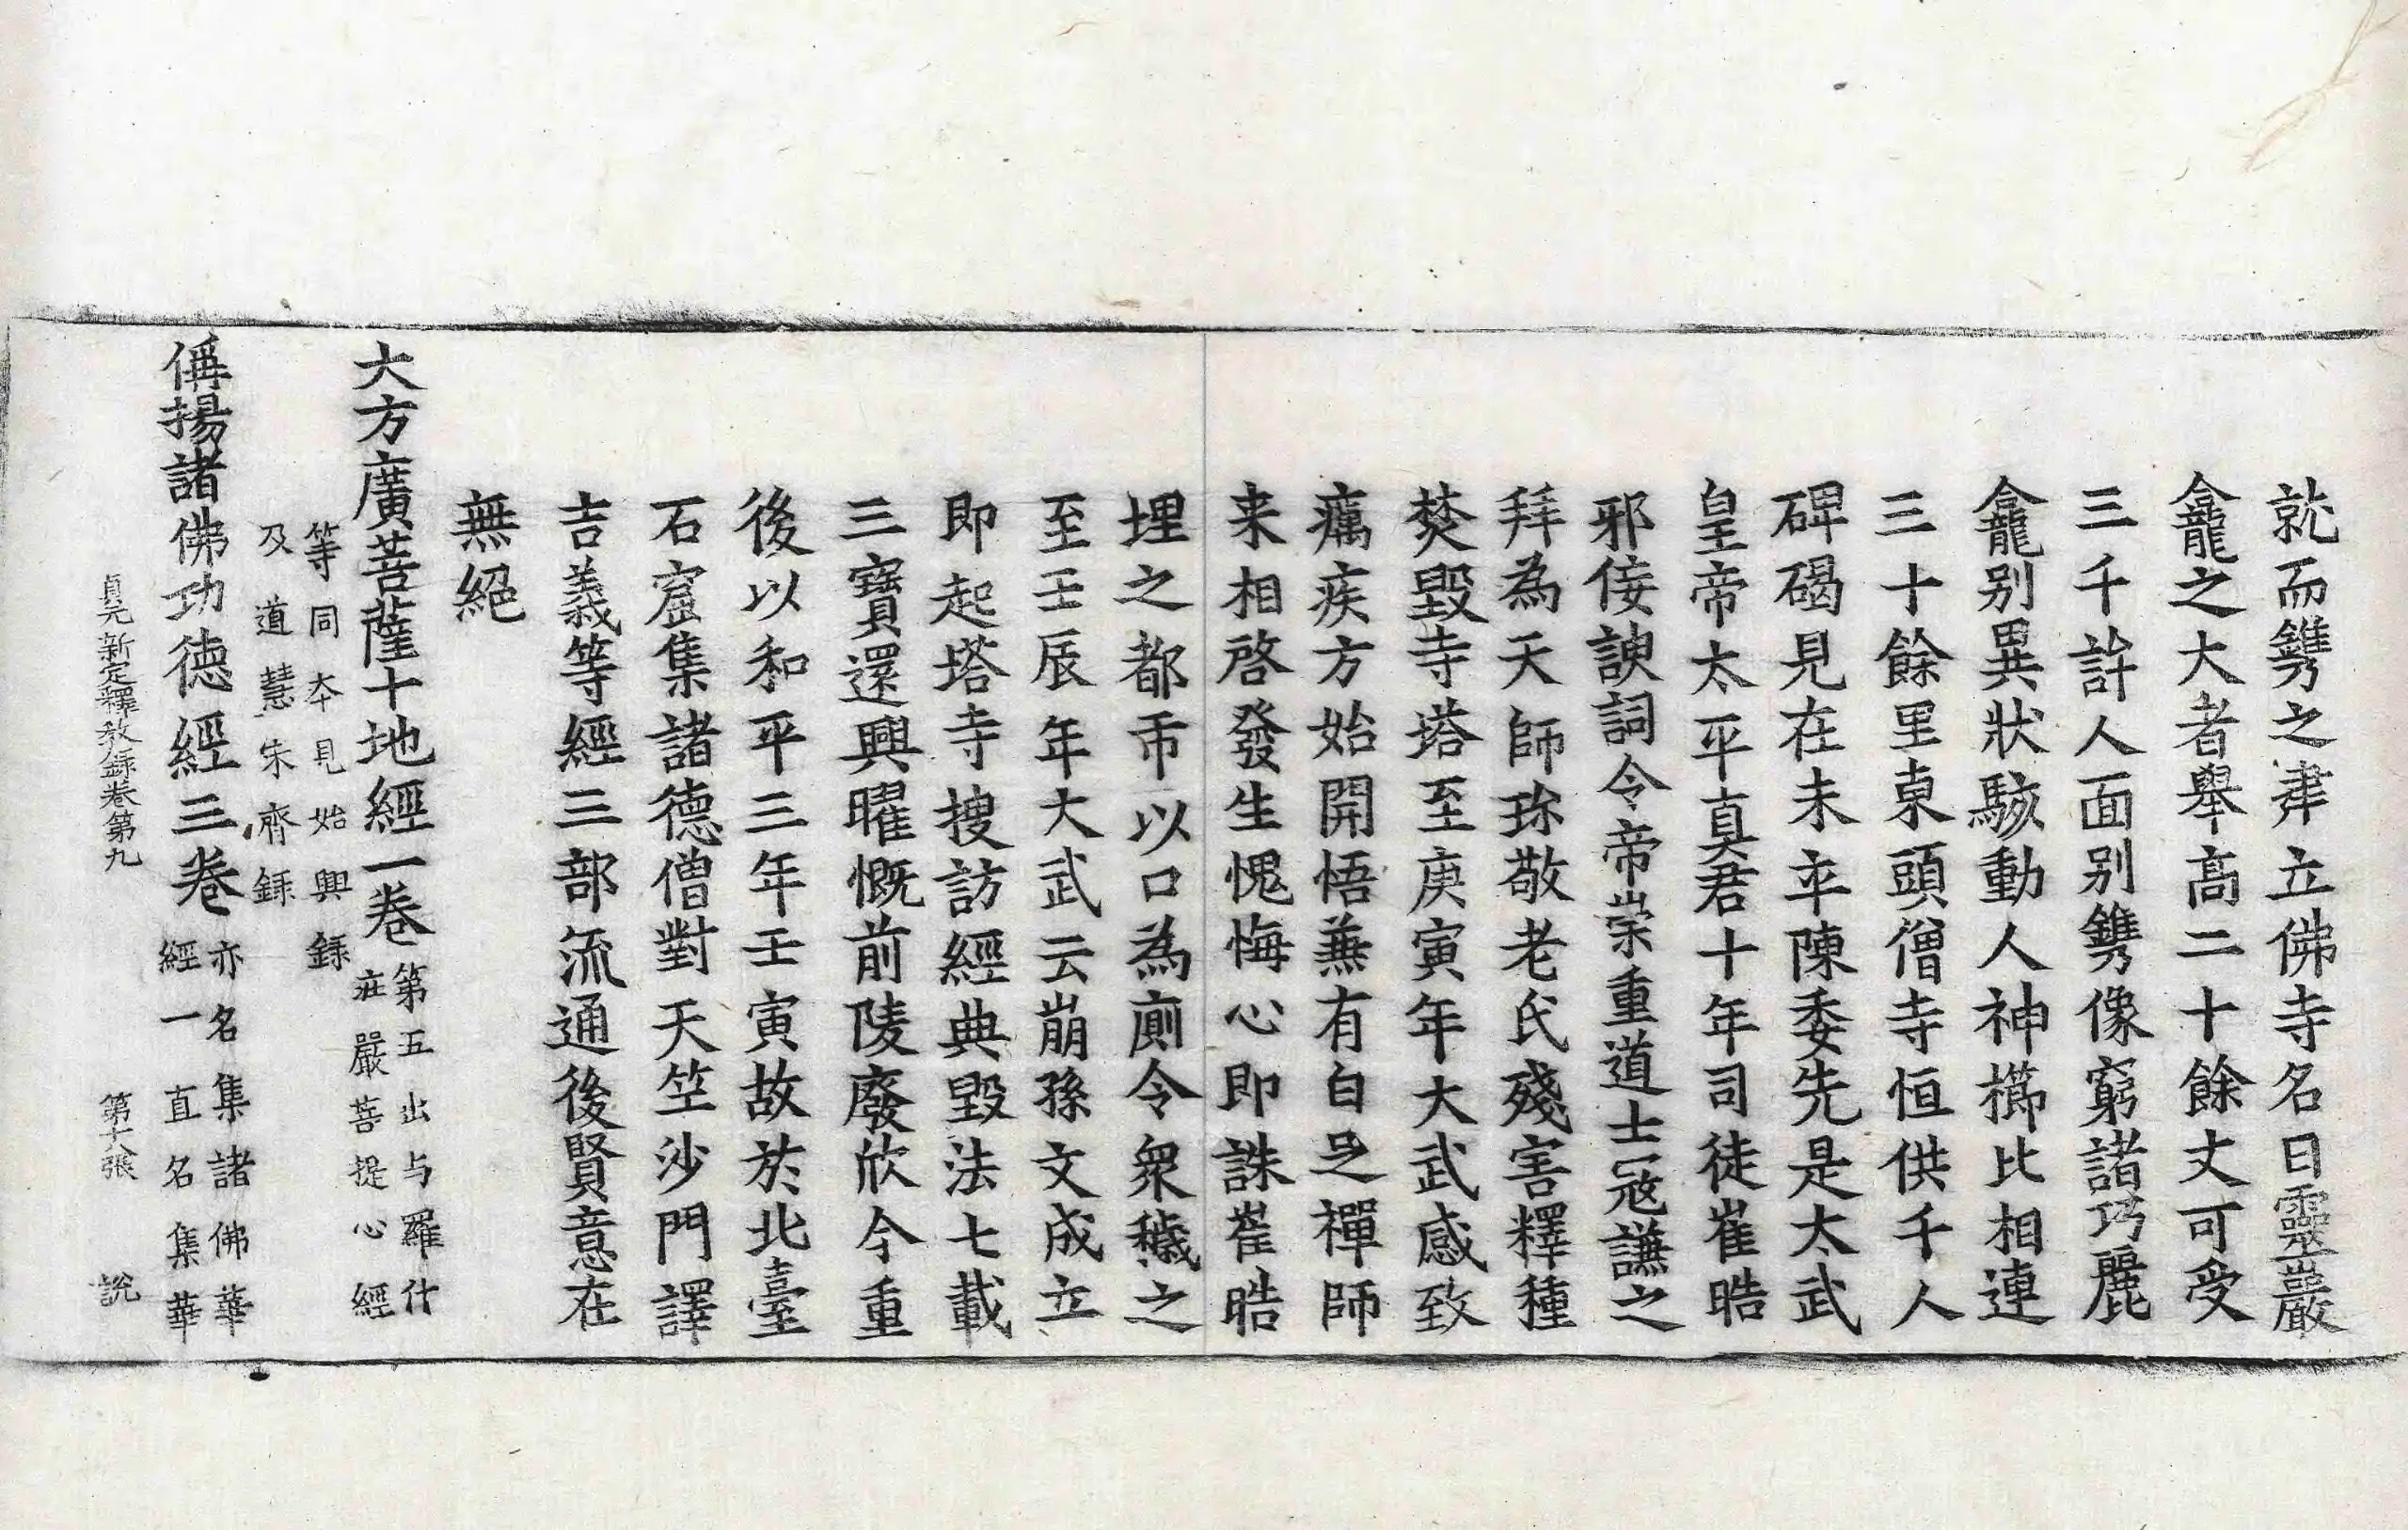 就而鐫之建立佛寺名曰靈巖
龕之大者舉高二十餘丈可受
三千許人面別鐫像窮諸巧麗
龕別異狀駭動人神櫛比相連
三十餘里東頭僧寺恒供千人
碑碣見在未卒陳委先是太武
皇帝太平真君十年司徒崔皓
邪佞諛詞令帝崇重道士寇謙之
拜為天師珎敬老氏殘害釋種
焚毀寺塔至庚寅年大武感致
癘疾方始開悟兼有白足禪師
来相啓發生愧悔心即誅崔皓
埋之都市以口為廁令衆穢之
至壬辰年大武云崩孫文成立
即起塔寺搜訪經典毀法七載
三寶還興曜慨前陵廢欣今重
後以和平三年壬寅故於北臺
石窟集諸德僧對天竺沙門譯
吉義等經三部流通後賢意在
無絕
大方廣菩薩十地經一卷第五出与羅什
莊嚴菩提心經
等同本見始興録
及道慧宋齊録
偁揚諸佛功德經三卷亦名集諸佛華
經一直名集華
貞元新定釋教録卷第九 第十八張 說